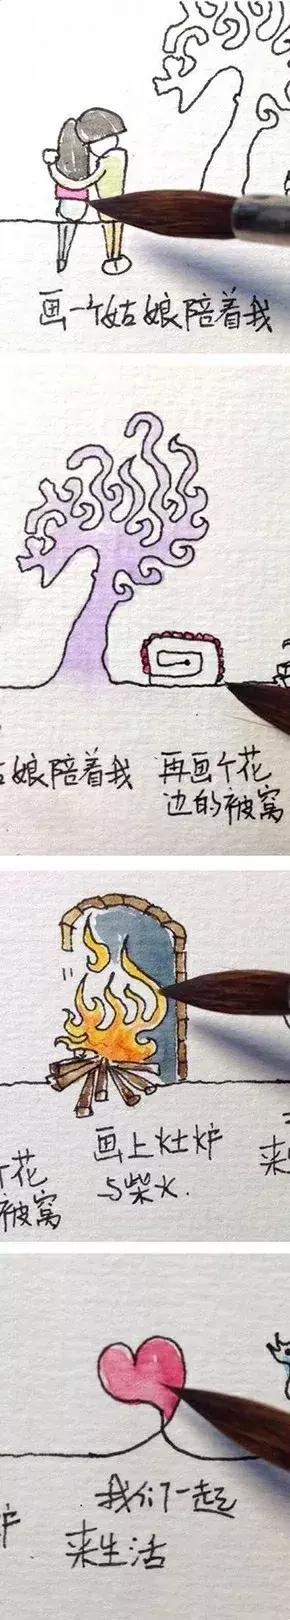 画一个姑娘陪着我
姑娘陪着我
再画个花
边的被窝
个花
被窝
画上灶炉
与柴火.
来
炉
我们一起
来生活